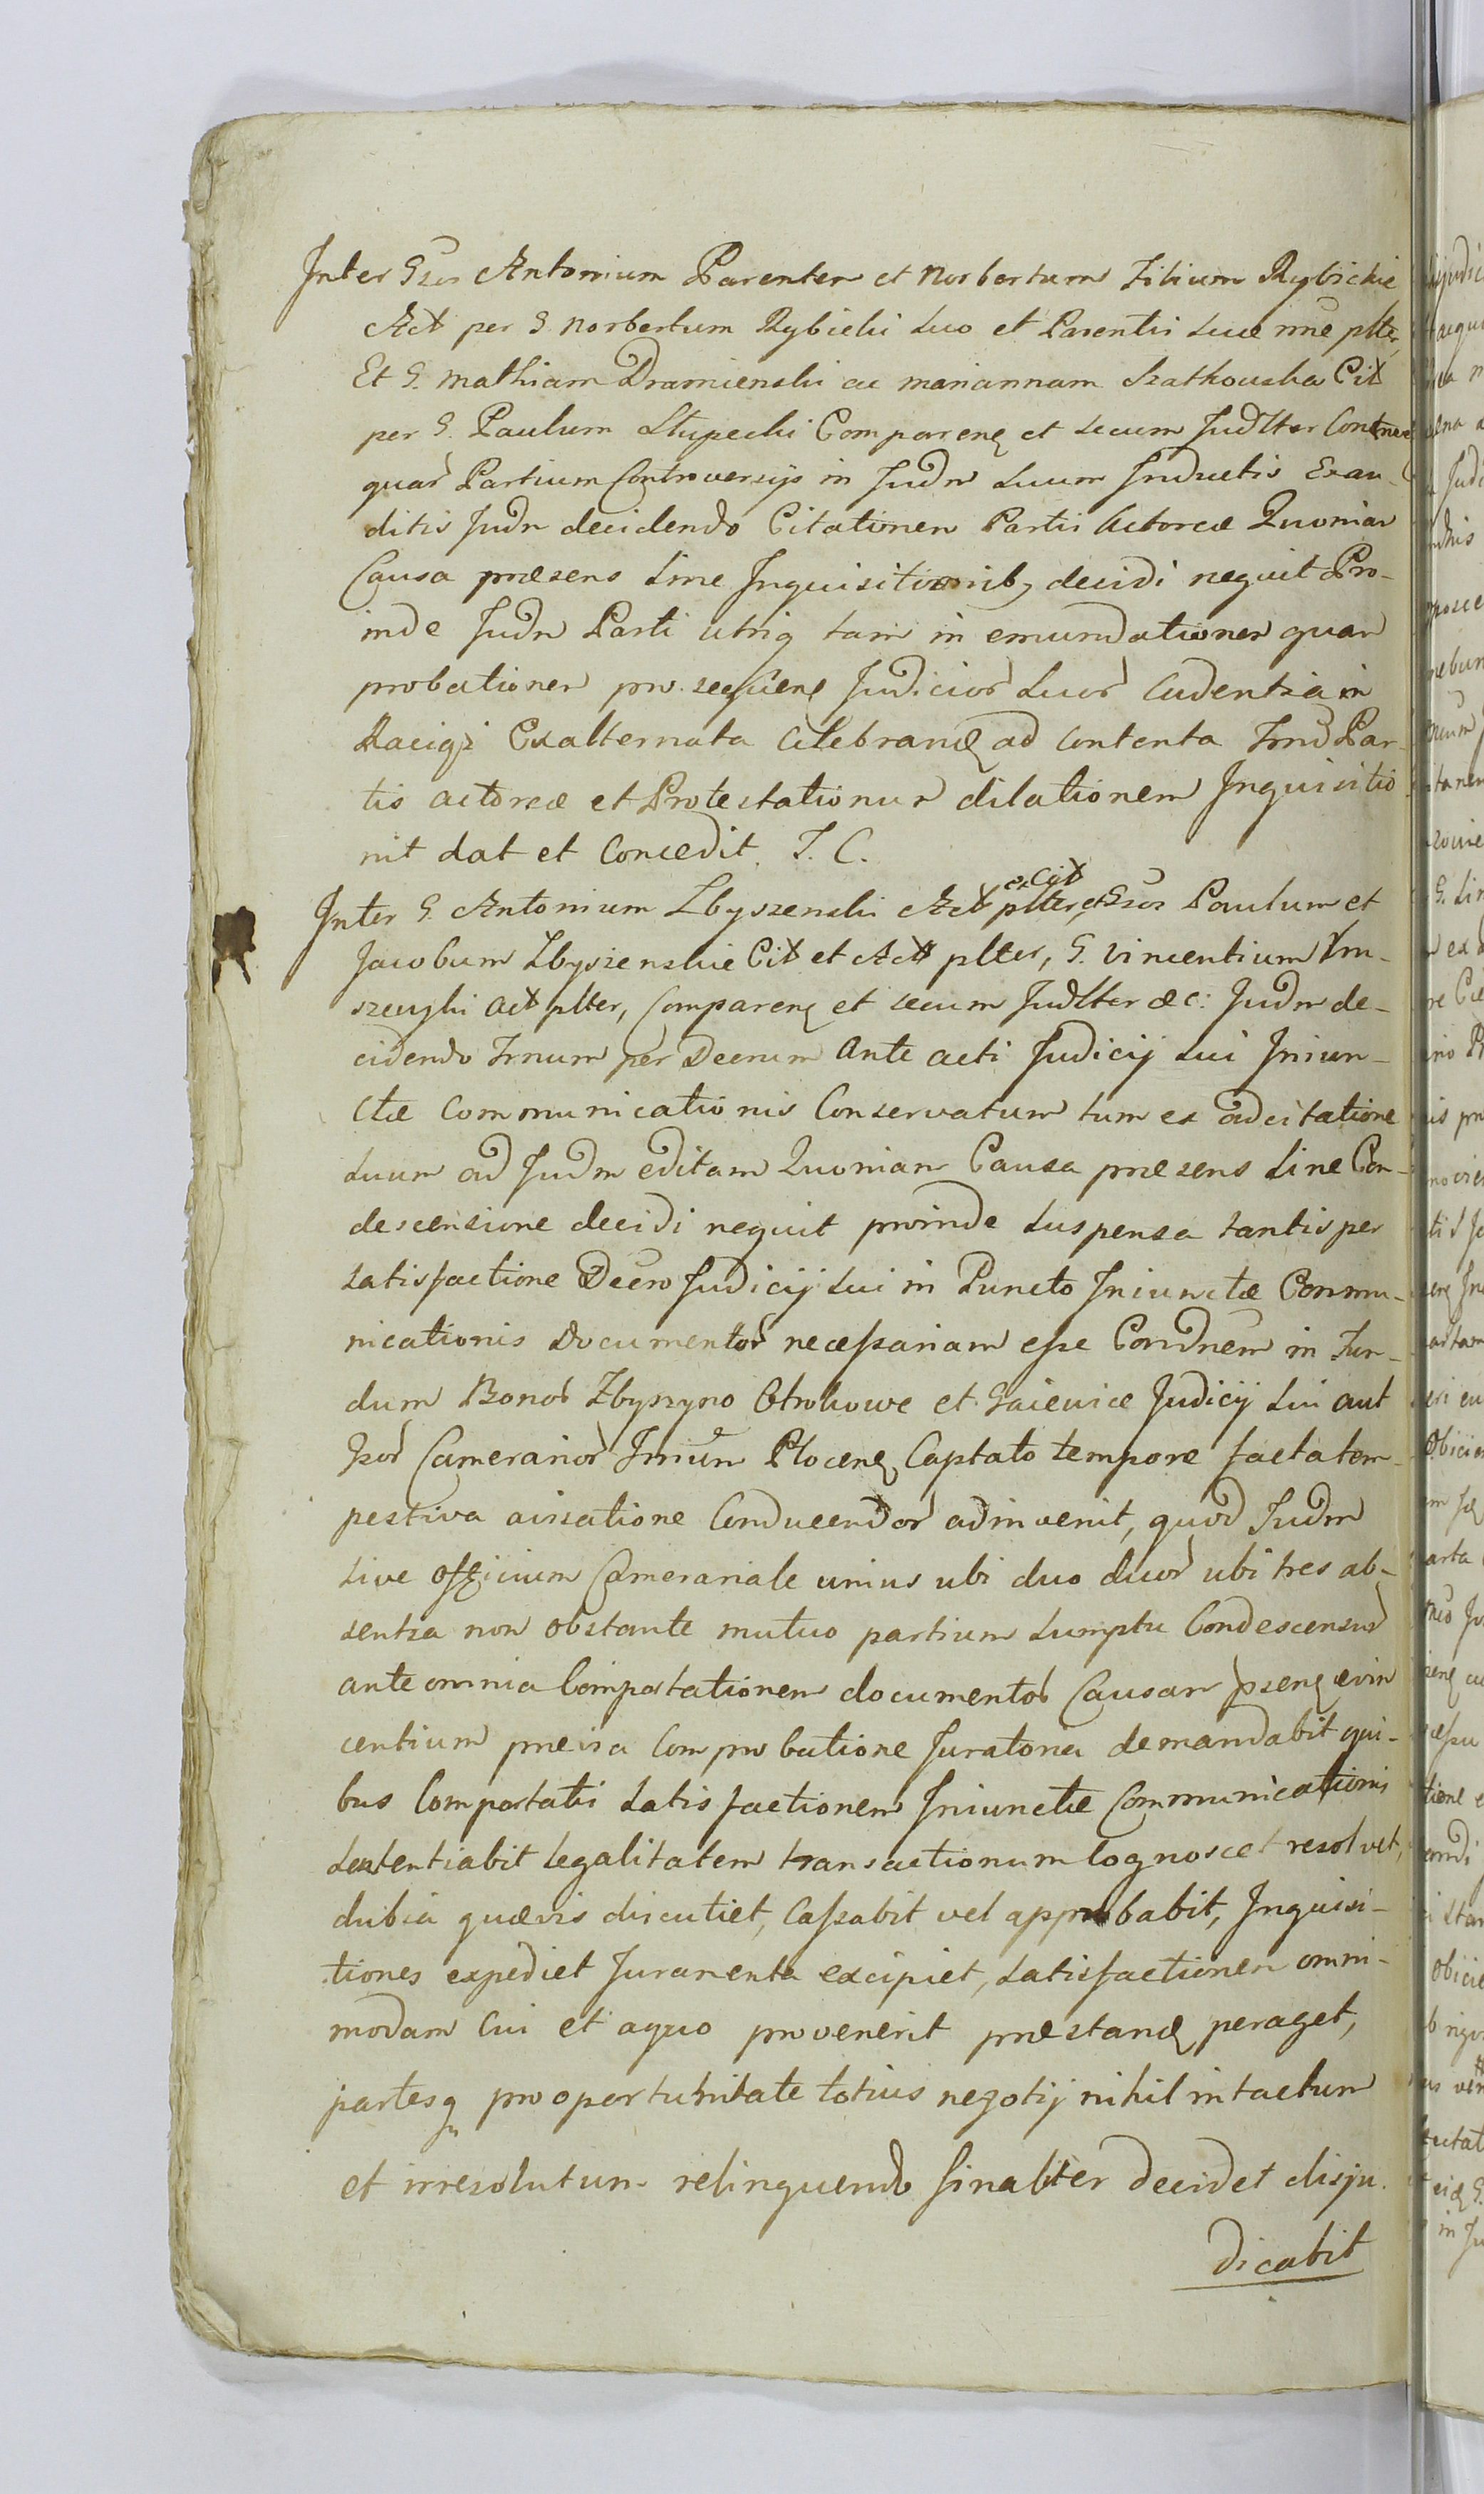 Inter Gsos Antonium Parentem et Norbertum Filium Rybickie
Act per G Norbertum Rybicki suo et Parentis sui nne pltr,
Et G. Mathiam Dramienski ac Mariannam Szatkowska Cit
per G. Paulum Słupecki Comparen et secum Judltter
quar Partium Controversijs in Judm suum Inductis Exau-
ditis Judm decidendo Citationem Partis Actoreæ Quoniam
Causa præsens sine Inquisitionib, decidi nequit Pro-
inde Judm Parti utriq tam in emundationem quam
probationem pro. Judicior suor Cadentia in
Raciąż Exalternata Celebrand ad contenta Trnd Par-
tis actoreæ et Protestationum dilationem Inquisitio
nit dat et Concedit. T. C.
Inter G. Antonium Zbyszenski Act et Cit pltter, et Gsos Paulum et
Jacobum Zbyszenskie Cit et Act plter, G. Vincentium
act plter, Comparen et secum Judltter &c: Judm de-
cidendo Trnum per Decrum Ante acti Judicij sui Iniun-
ctæ Communicationis Conservatum tum ex adcitatione
suum ad Judm editam Quoniam Causa præsens sine Con-
descensione decidi nequit proinde suspensa tantisper
satisfactione Decro Judicij sui in Puncto Iniunctæ Commu-
nicationis Documentor necessariam esse Condnem in Fun-
dum Bonor Zbyszyno Otrokowe et Gaiewice Judicij sui aut
Camerarior Plocen, Captato tempore facta tem-
pestiva aviisatione Conducendor adinvenit, quod Judm
sive officium Camerariale unius ubi duo duor ubi tres ab-
sentia non obstante mutuo partium sumptu Condescensur
ante omnia Comportationem documentor Causam psen evin
centium prævia Comprobatione Juratoria demandabit qui-
bus Comportatis satisfactionem Iniunctæ Communicationis
sententiabit legalitatem transactionum Cognoscet resolvet,
dubia quævis discutiet, Cassabit vel approbabit, Inquisi-
tiones expediet Juramenta excipiet, satisfactionem omni-
modam Cui et aquo provenerit præstand peraget,
partesq pro oportunitate totius negotij nihil intactum
et irresolutum relinquendo finaliter decidet disju-
dicabit